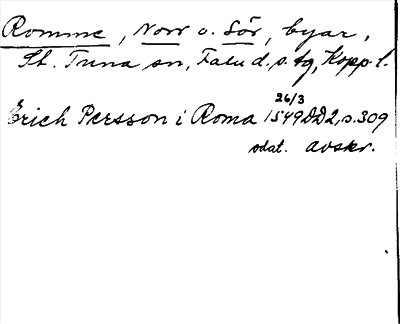 Romme, Norr o. Sör, byar,
St. Tuna sn, Falu d.s. tg, Kopp. l.
26/3
Erich Persson i Roma 1549 DD2, s.309
odat. avskr.